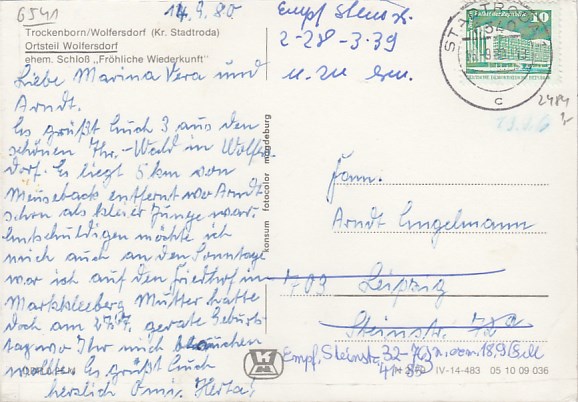 6541
14.9.80.
Trockenborn/Wolfersdorf (Kr. Stadtroda)
Ortsteil Wolfersdorf
ehem. Schloß „Fröhliche Wiederkunft"
Liebe Marina Vera und
Arndt.
Es grüßt Euch 3 aus den
schönen Thr.-Wald in Wolfs
dorf. Es liegt 5 km von
Meuseback entfernt wo Arndt
schon als kleier Junge war.
Entschuldigen möchte ich
mich auch an den Sonntage
war ich auf den Friedhof in
Markkleeberg Mutter hatte
doch am 27.7. gerate Geburts
tag wo Ihr mich besuchen
wolltet. Es grüßt Euch
herzlich Omi. Herta!
konsum fotocolor magdeburg
Empf Steinstr.
2-28-3-39
STADTRODA
c
10
2484
Fam.
Arndt Engelmann
703 Leipzig
Steinstr. 72a
Empf. Steinstr. 32-70 n. vom 18.9
41-85
IV-14-483 05 10 09 036